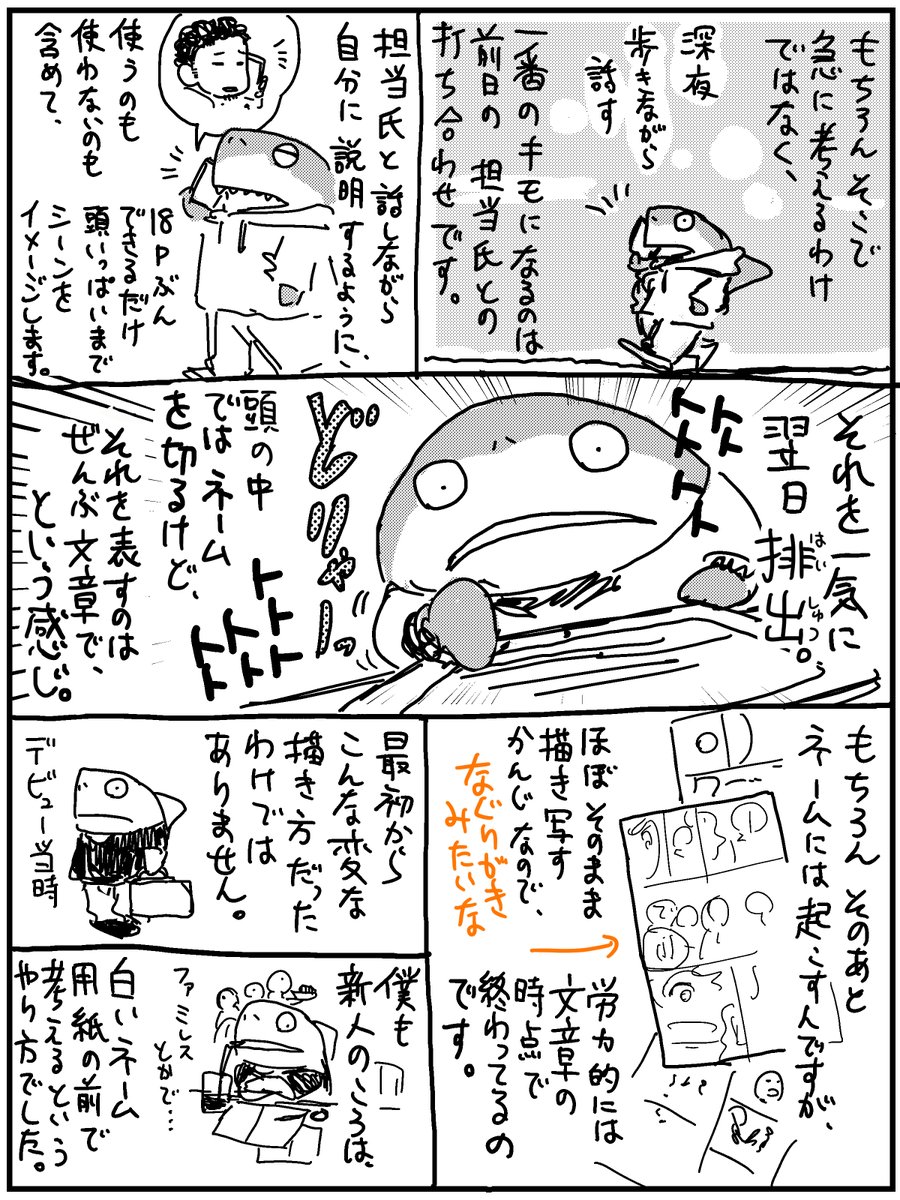 もちろんそこで
急に考えるわけ
ではなく、
深夜
歩きながら
話す
一番のキモになるのは
前日の担当氏との
打ち合わせです。
担当氏と話しながら
自分に説明するように、
使うのも
使わないのも
含めて、
18Pぶん
できるだけ
頭いっぱいまで
シーンを
イメージします。
それを一気に
翌日排出。
はいしゅつぅ
トトトトト
トト
ドリャーッ
頭の中
ではネーム
を切るけど、
それを表すのは
ぜんぶ文章で、
という感じ。
トトトトトトト
もちろんそのあと
ネームには起こすんですが、
ほぼそのまま
描き写す
かんじなので、
なぐりがき
みたいな
労力的には
文章の
時点で
終わってるの
です。
最初から
こんな変な
描き方だった
わけでは
ありません。
デビュー当時
僕も
新人のころは、
ファミレス
とかで…
白いネーム
用紙の前で
考えるという
やり方でした。